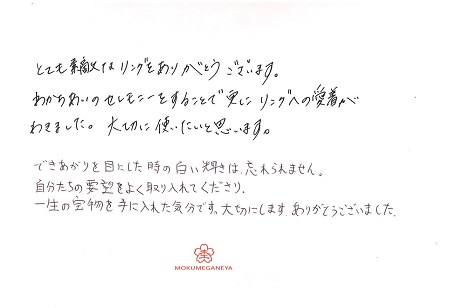 とても素敵なリングをありがとうございます。
わかちあいのセレモニーをすることで更にリングへの愛着が
わきました。大切に使いたいと思います。
できあがりを目にした時の白い輝きは、忘れられません。
自分たちの要望をよく取り入れてくださり、
一生の宝物を手に入れた気分です。大切にします。ありがとうございました。
MOKUMEGANEYA